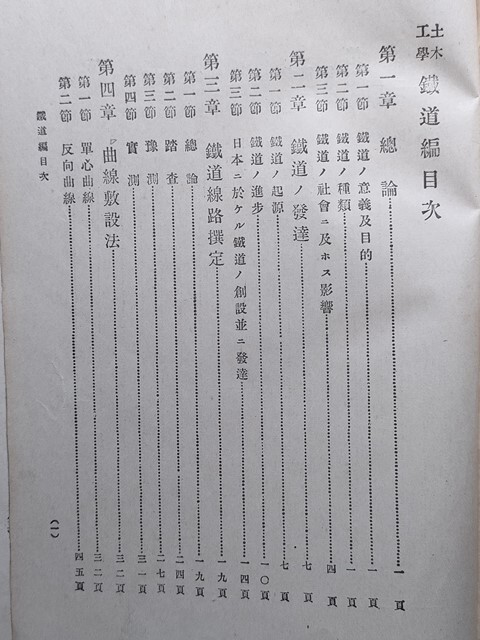 土木工學 鐵道編目次
第一章 總論……一頁
第一節 鐵道ノ意義及目的……一頁
第二節 鐵道ノ種類……一頁
第三節 鐵道ノ社會ニ及ホス影響……四頁
第二章 鐵道ノ發達……七頁
第一節 鐵道ノ起源……七頁
第二節 鐵道ノ進步……一〇頁
第三節 日本ニ於ケル鐵道ノ創設並ニ發達……一四頁
第三章 鐵道線路撰定……一九頁
第一節 總論……一九頁
第二節 踏査……二四頁
第三節 豫測……二七頁
第四節 實測……三一頁
第四章 曲線敷設法……三二頁
第一節 單心曲線……三二頁
第二節 反向曲線……四五頁
鐵道編目次
(一)